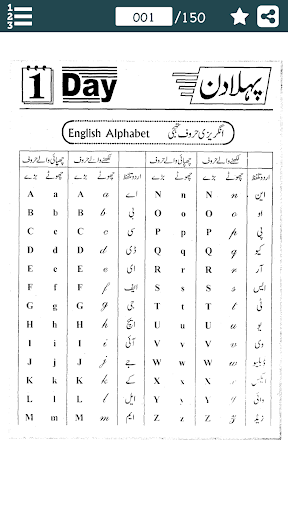 001 /150
1 Day پہلا دن
English Alphabet انگریزی حروف تہجی
چھپائی والے حروف لکھنے والے حروف چھپائی والے حروف لکھنے والے حروف
بڑے چھوٹے بڑے چھوٹے اردو تلفظ بڑے چھوٹے بڑے چھوٹے اردو تلفظ
A a A a اے N n N n این
B b B b بی O o O o او
C c C c سی P p P p پی
D d D d ڈی Q q Q q کیو
E e E e ای R r R r آر
F f F f ایف S s S s ایس
G g G g جی T t T t ٹی
H h H h ایچ U u U u یو
I i I i آئی V v V v وی
J j J j جے W w W w ڈبلیو
K k K k کے X x X x ایکس
L l L l ایل Y y Y y وائی
M m M m ایم Z z Z z زیڈ